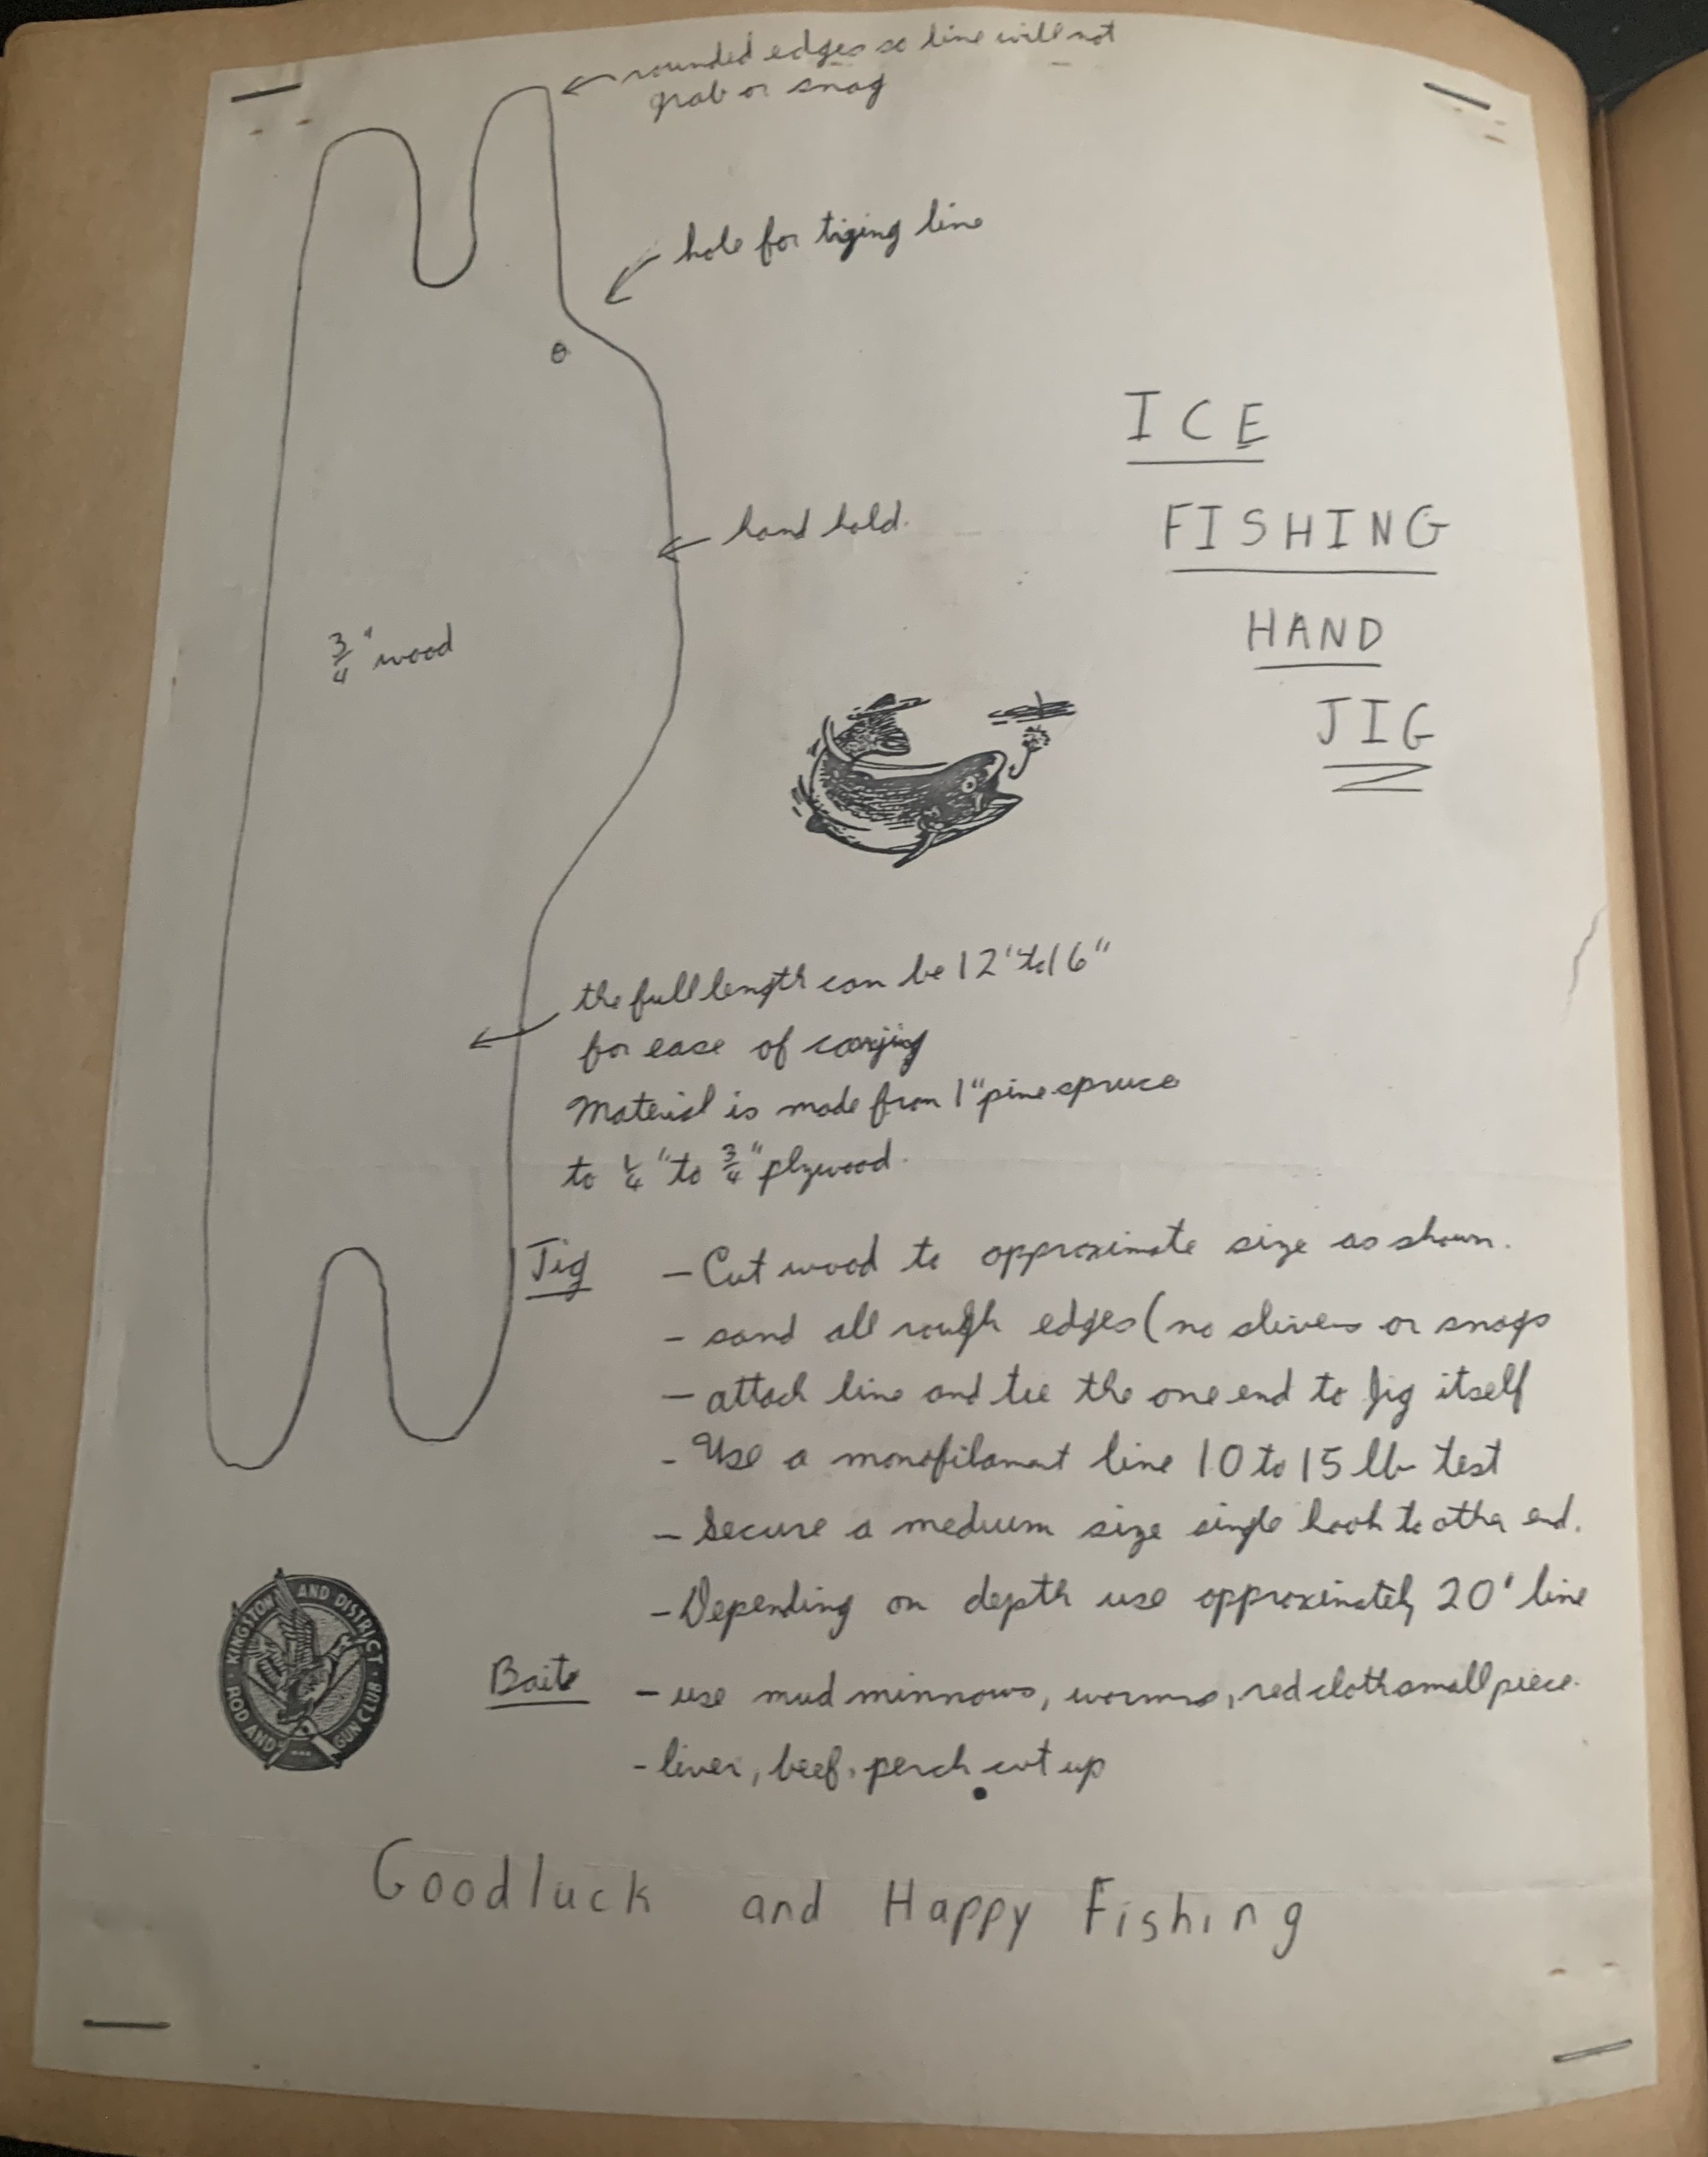 rounded edges so line will not
grab or snag
hole for tiging line
ICE
FISHING
HAND
JIG
hand hold.
3/4" wood
the full length can be 12" to 16"
for ease of
Material is made from 1" pine spruce
to 1/4" to 3/4" plywood.
Jig - Cut wood to approximate size as shown.
- sand all rough edges (no slivers or snags
- attach line and tie the one end to Jig itself
- Use a monofilament line 10 to 15 lb test
- Secure a medium size single hook to other end.
- Depending on depth use approximately 20' line
Bait - use mud minnows, worms, red cloth small piece.
- liver, beef, perch cut up
KINGSTON AND DISTRICT
ROD AND GUN CLUB
Goodluck and Happy Fishing